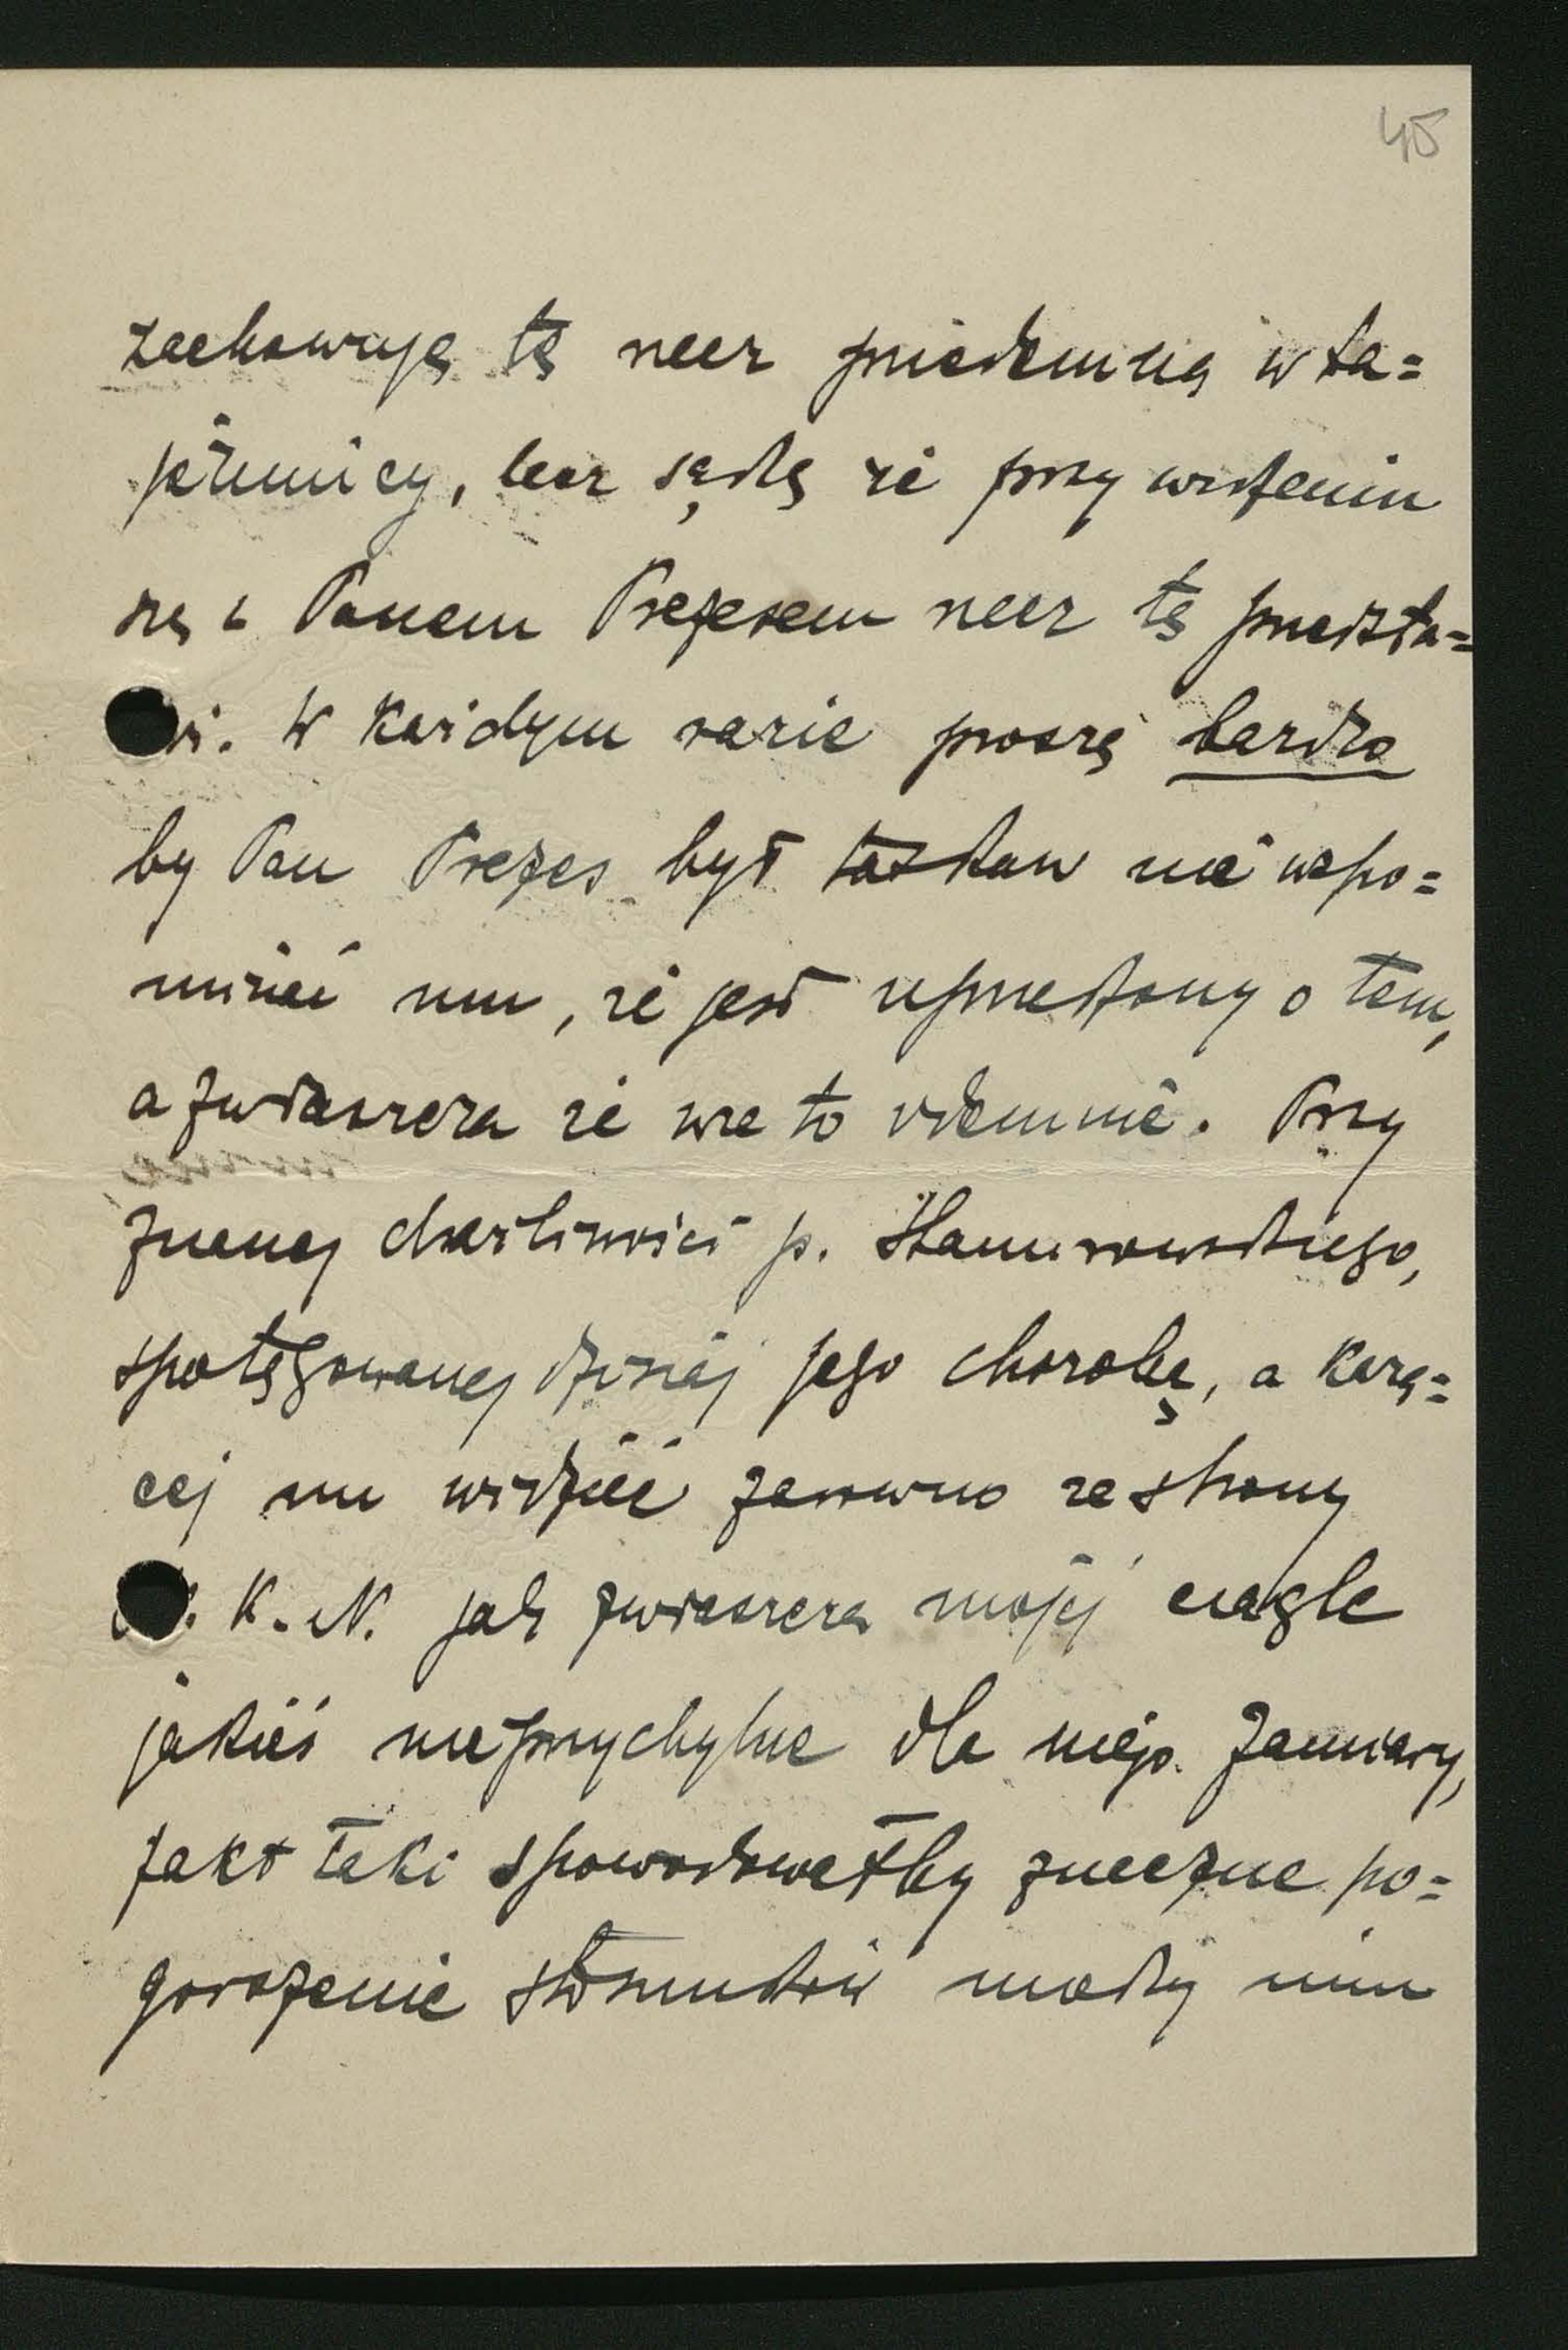 45
zachowuję tę rzecz przedemną w ta=
jemnicy, lecz sądzę że przy widzeniu
się z Panem Prezesem rzecz tę przedsta=
wi. W każdym razie proszę bardzo
by Pan Prezes był łaskaw nie wspo=
minać mu, że jest uprzedzony o tem,
a zwłaszcza że wie to odemnie. Przy
znanej draźliwości p.
spotęgowanej dzisiaj jego chorobą, a każą=
cej mu widzieć zarówno ze strony
K. N. jak zwłaszcza mojej ciągle
jakieś nieprzychylne dla niego zamiary,
fakt taki spowodowałby znaczne po=
gorszenie stosunków między nim